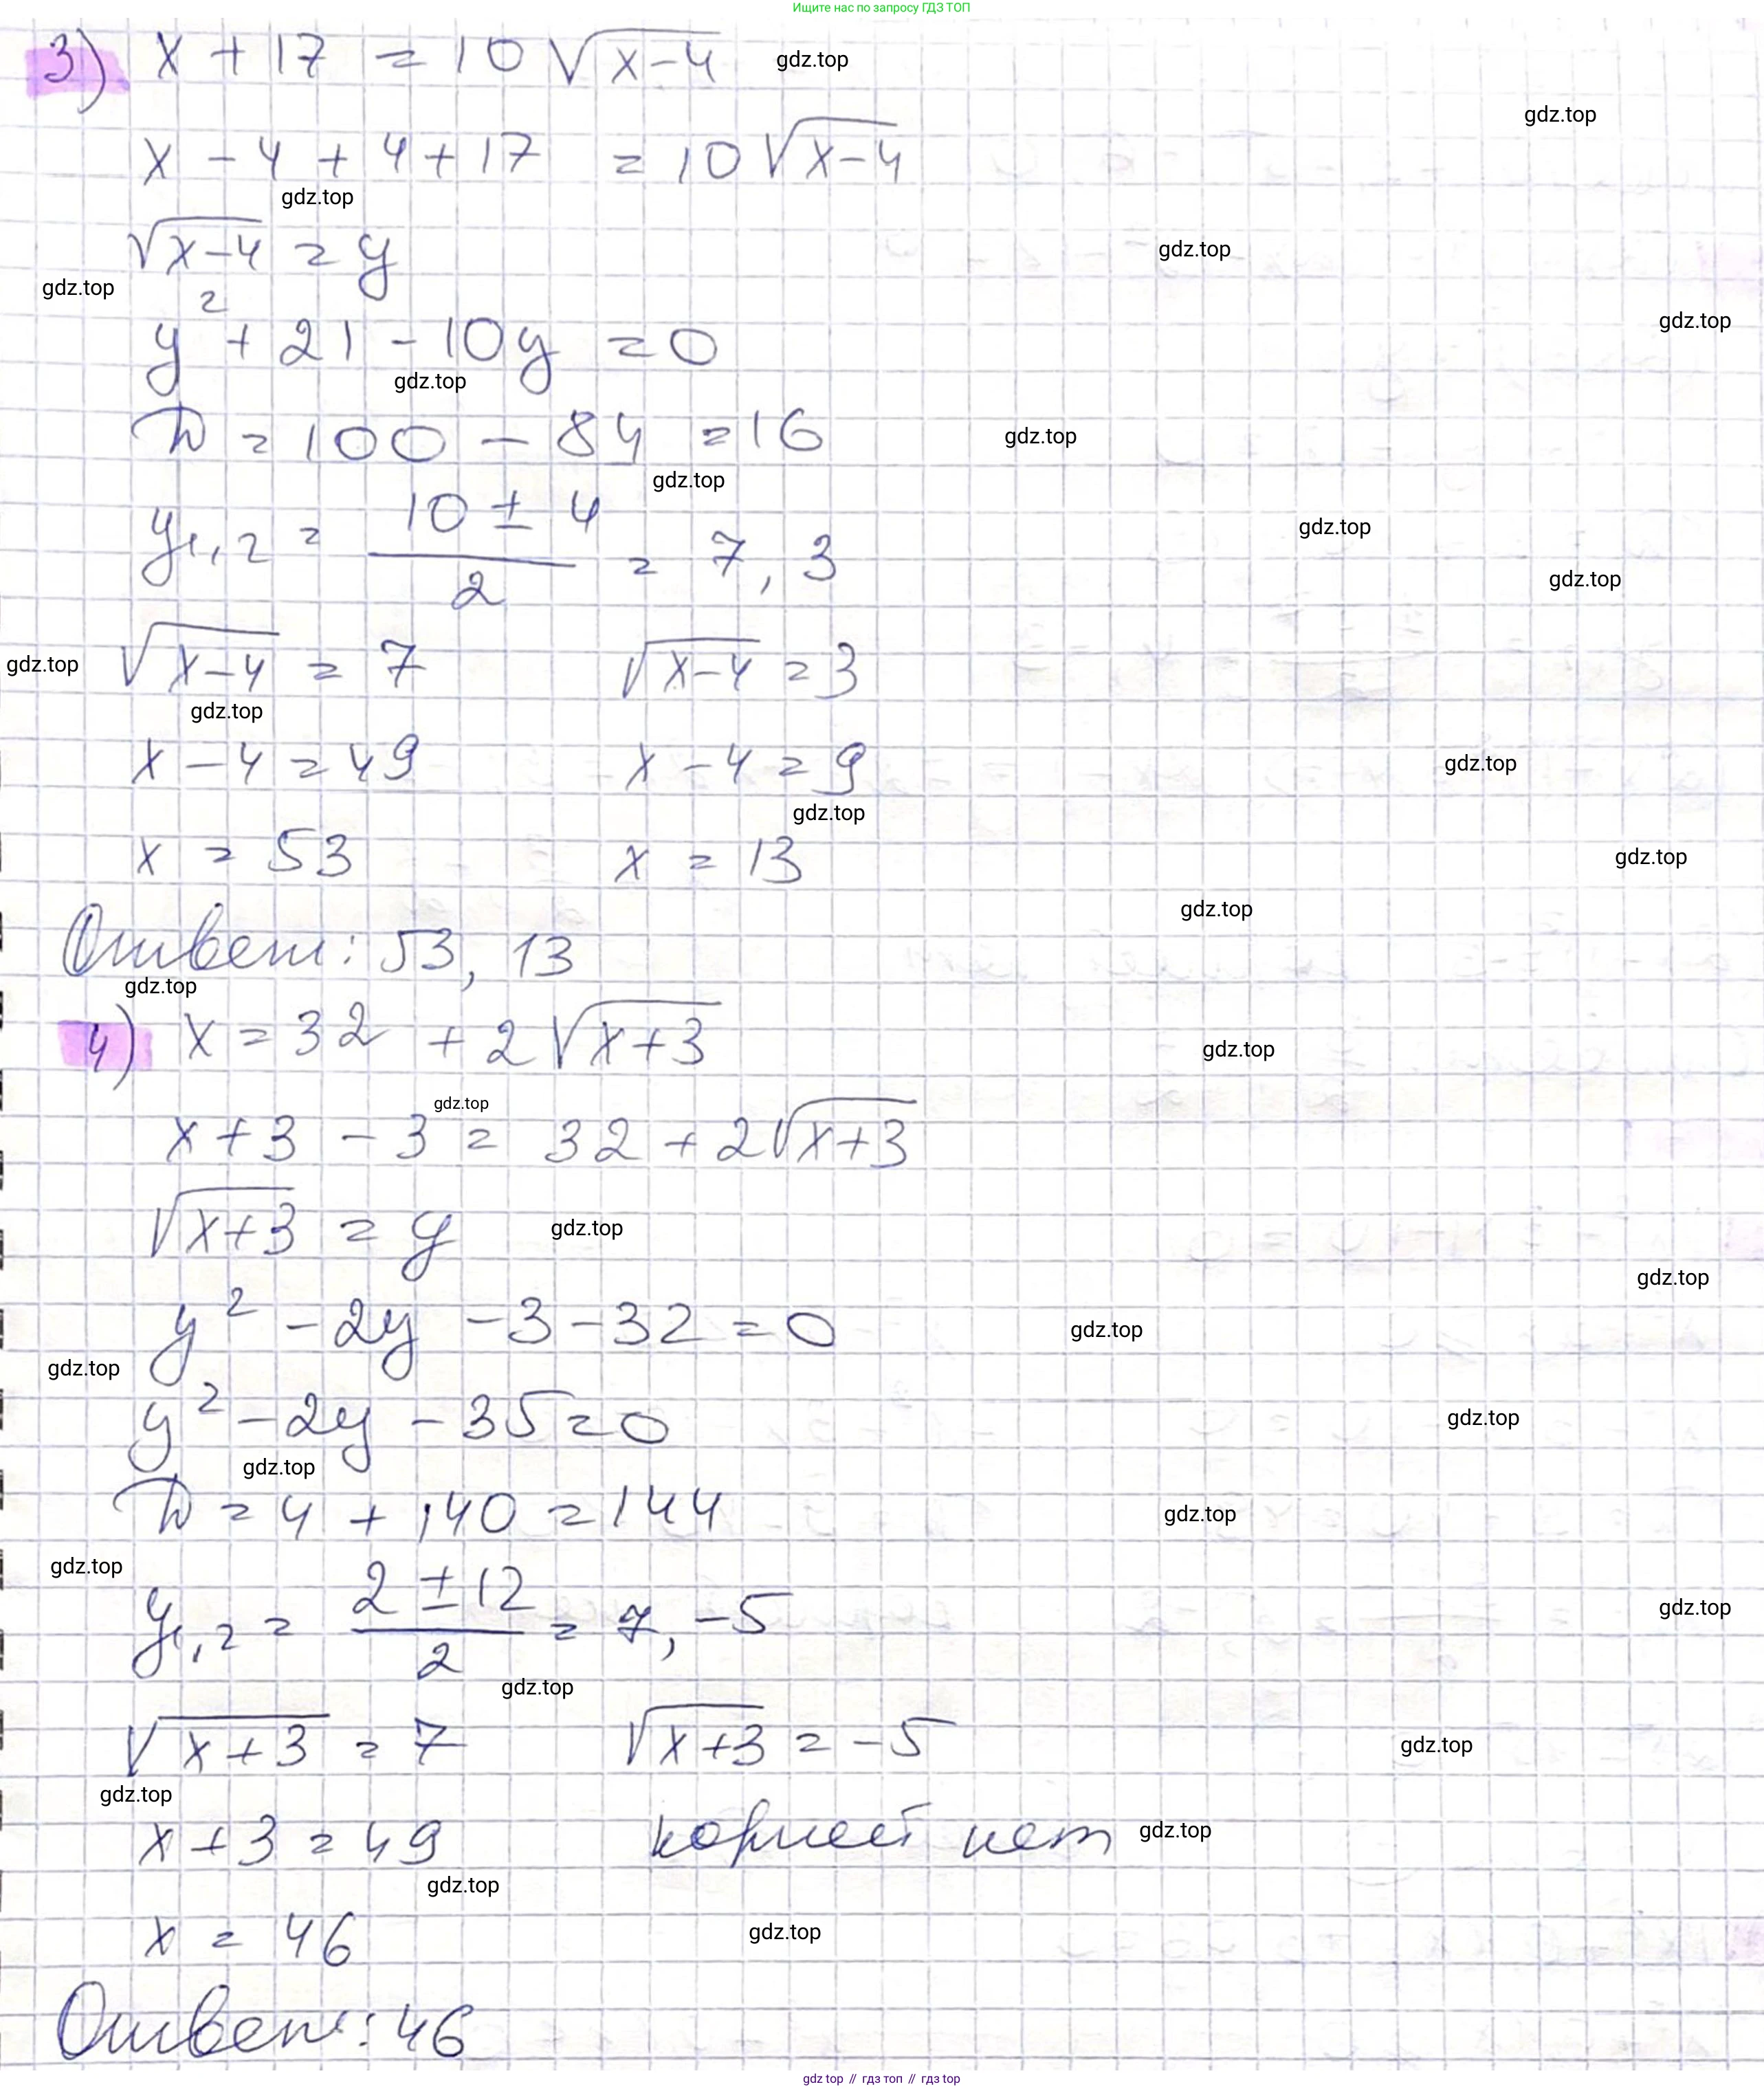 Ищите нас по запросу ГДЗ ТОП
3) x + 17 = 10 √(x-4) gdz.top
gdz.top
x - 4 + 4 + 17 = 10 √(x-4)
gdz.top
√(x-4) = y gdz.top
gdz.top
gdz.top
y² + 21 - 10y = 0
gdz.top
D = 100 - 84 = 16 gdz.top
gdz.top
y₁,₂ = (10 ± 4)/2 = 7, 3 gdz.top
gdz.top
gdz.top √(x-4) = 7 √(x-4) = 3
gdz.top
x - 4 = 49 x - 4 = 9 gdz.top
gdz.top
x = 53 x = 13 gdz.top
gdz.top
Ответ: 53, 13
gdz.top
4) x = 32 + 2 √(x+3) gdz.top
gdz.top
x + 3 - 3 = 32 + 2√(x+3)
√(x+3) = y gdz.top
gdz.top
y² - 2y - 3 - 32 = 0 gdz.top
gdz.top
y² - 2y - 35 = 0 gdz.top
gdz.top
D = 4 + 140 = 144 gdz.top
gdz.top
y₁,₂ = (2 ± 12)/2 = 7, -5 gdz.top
gdz.top
√(x+3) = 7 √(x+3) = -5 gdz.top
gdz.top
x + 3 = 49 корней нет gdz.top
gdz.top
x = 46 gdz.top
Ответ: 46
gdz top // гдз топ // гдз top